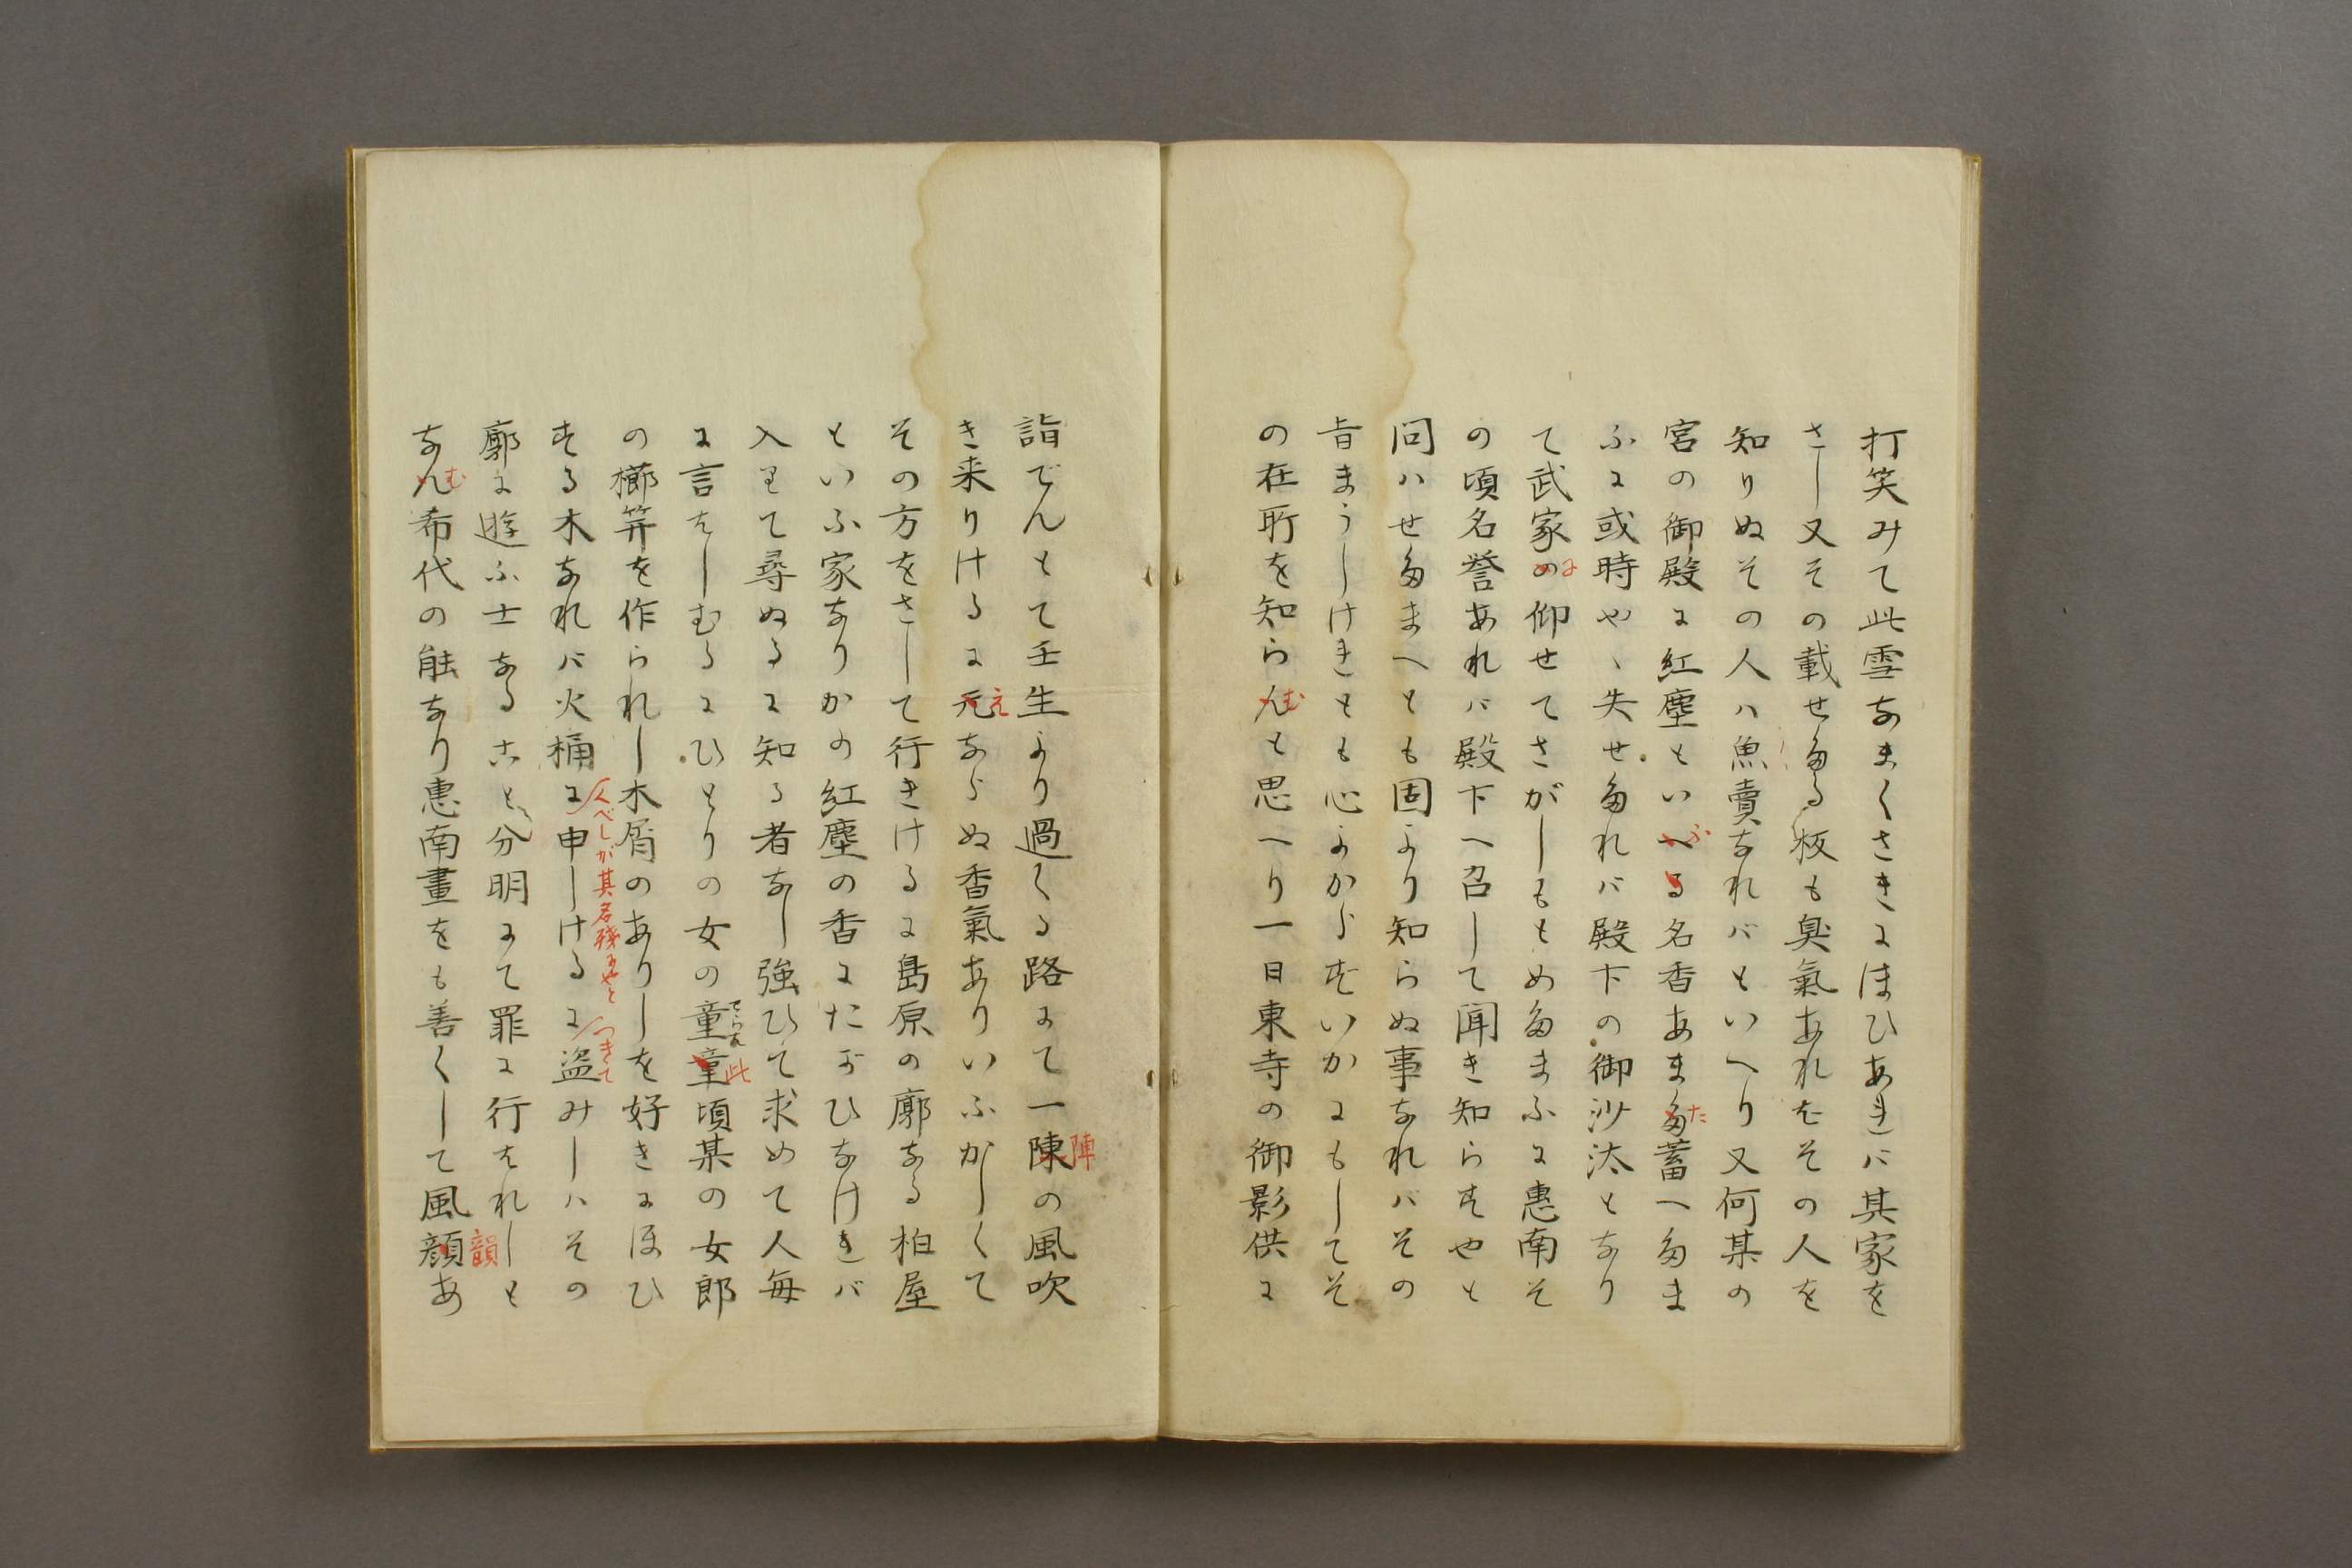 打笑みて此雪なまくさきにほひあれバ其家を
さし又その載せたる板も臭氣あれどその人を
知りぬその人ハ魚賣なれバといへり又何某の
宮の御殿に紅塵といへる名香あまた蓄へたま
ふ
た
ふに或時やゝ失せたれバ殿下の御沙汰となり
て武家の仰せてさがしもとめたまふに惠南そ
に
の頃名誉あれバ殿下へ召して聞き知らずやと
問ハせたまへとも固より知らぬ事なれバその
旨まうしけれとも心よからずいかにもしてそ
の在所を知らんも思へり一日東寺の御影供に
む
詣でんとて壬生より過くる路にて一陳の風吹
陣
き来りけるに元ならぬ香氣ありいふかしくて
え
その方をさして行きけるに島原の廓なる柏屋
といふ家なりかの紅塵の香にたがひなけれバ
入りて尋ぬるに知る者なし強ひて求めて人毎
に言はしむるにひとりの女の童童頃某の女郎
此
の櫛笄を作られし木屑のありしを好きにほひ
する木なれバ火桶に申しけるに盗みしハその
くべしが其名残にやと
つきて
廓に遊ふ士なること分明にて罪に行はれしと
なん希代の能なり惠南畫をも善くして風顔あ
む
韻